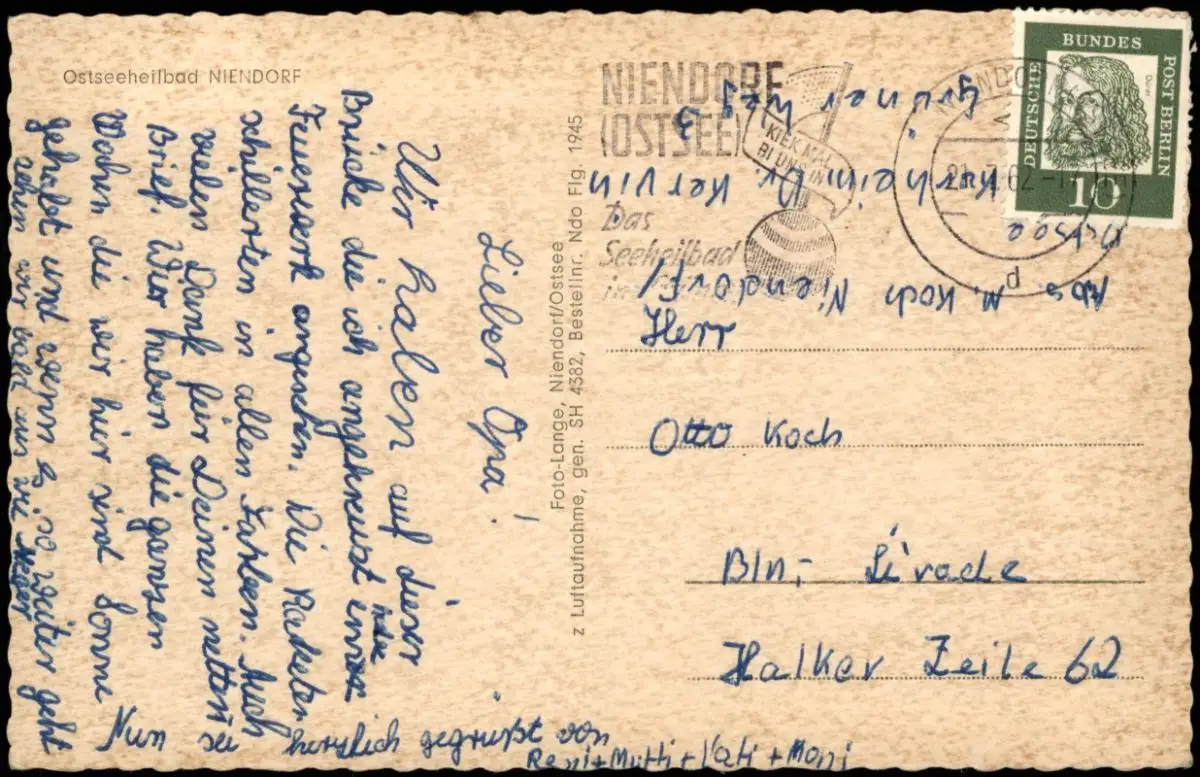 Ostseeheilbad NIENDORF
Lieber Opa!
Wir haben auf dieser
Brücke die ich angekreuzt habe
Feuerwerk angesehen. Die Raketen
schillerten in allen Farben. Auch
vielen Dank für Deinen netten
Brief. Wir haben die ganzen
Wochn die wir hier sind Sonne
gehabt und wenn es so weiter geht
sehen wir bald aus wie Neger
Nun sei herzlich gegrüßt von
Reni + Mutti + Vati + Moni
Foto-Lange, Niendorf/Ostsee
z Luftaufnahme, gen. SH 4382, Bestellnr. Ndo Flg. 1945
NIENDORF
(OSTSEE)
KIEK MAL
BI UNS IN
Das
Seeheilbad
DEUTSCHE
BUNDES
POST BERLIN
Dürer
10
NIENDORF
62
Abs. M. Koch Niendorf/
Ostsee
Kurheim Dr. Kervin
Grüner Weg 3
Herr
Otto Koch
Bln,-
Halker Zeile 62